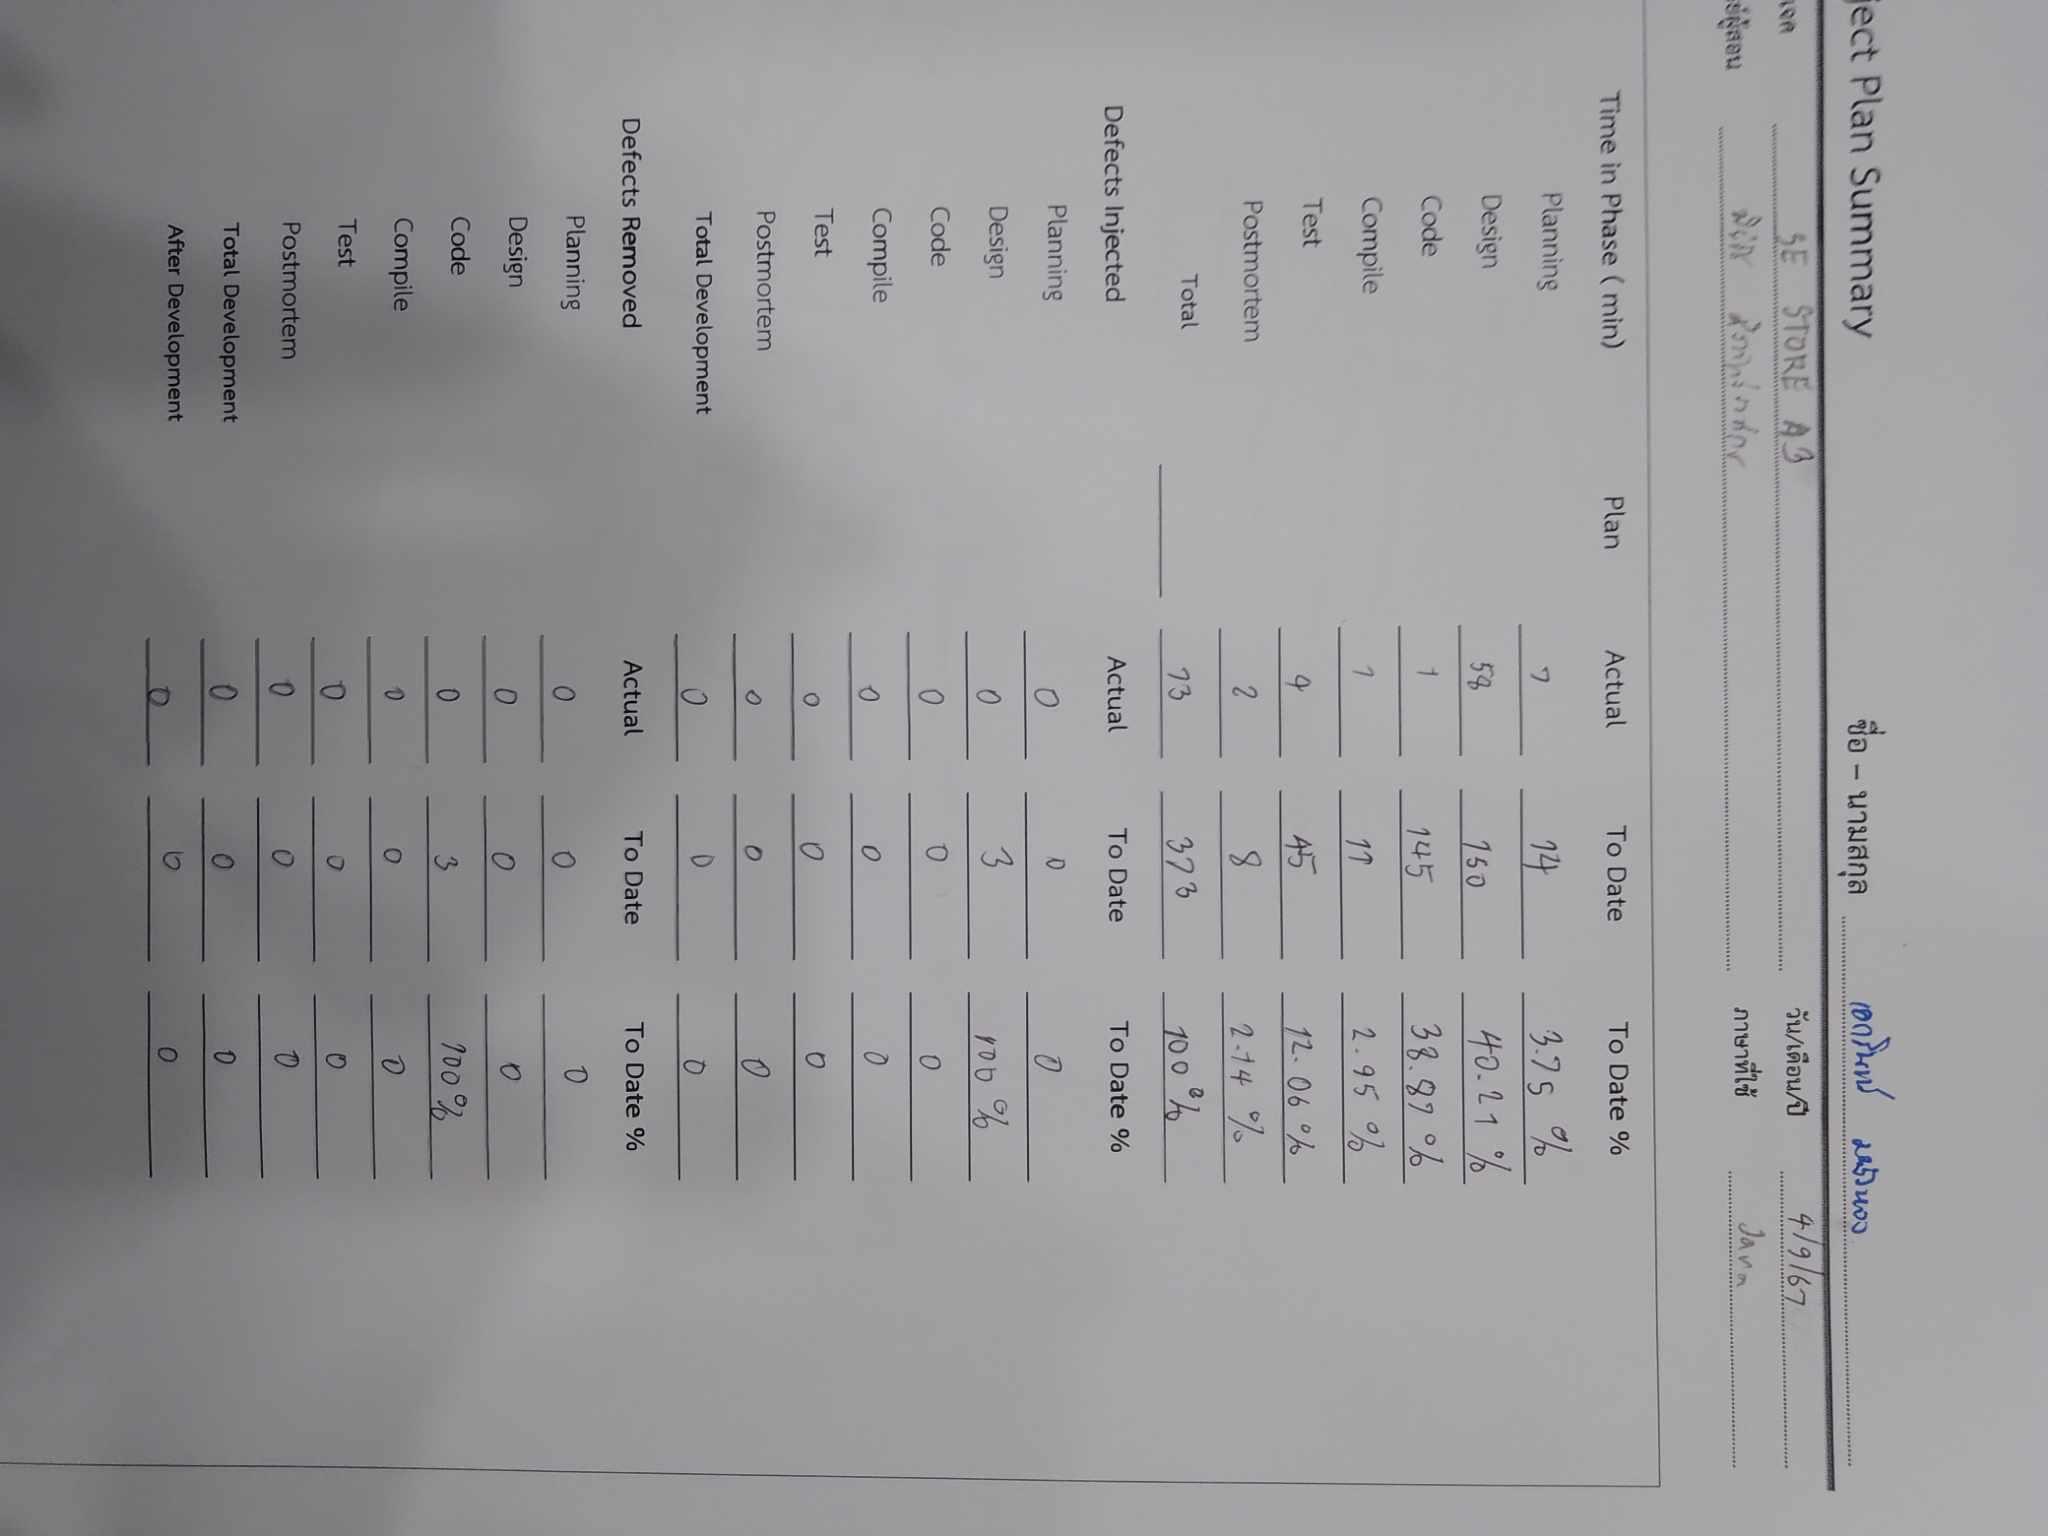 ject Plan Summary ชื่อ – นามสกุล
เจค SE STORE A3 วัน/เดือน/ปี 4/9/67
ย์ผู้สอน ภาษาที่ใช้ Java
Time in Phase ( min) Plan Actual To Date To Date %
Planning 7 14 3.75 %
Design 58 150 40.21 %
Code 1 145 38.87 %
Compile 1 11 2.95 %
Test 4 45 12.06 %
Postmortem 2 8 2.14 %
Total 73 373 100 %
Defects Injected Actual To Date To Date %
Planning 0 0 0
Design 0 3 100 %
Code 0 0 0
Compile 0 0 0
Test 0 0 0
Postmortem 0 0 0
Total Development 0 0 0
Defects Removed Actual To Date To Date %
Planning 0 0 0
Design 0 0 0
Code 0 3 100 %
Compile 0 0 0
Test 0 0 0
Postmortem 0 0 0
Total Development 0 0 0
After Development 0 0 0